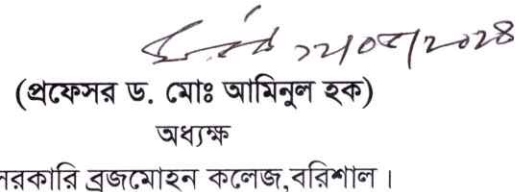 (প্রফেসর ড. মোঃ আমিনুল হক)
অধ্যক্ষ
সরকারি ব্রজমোহন কলেজ,বরিশাল।